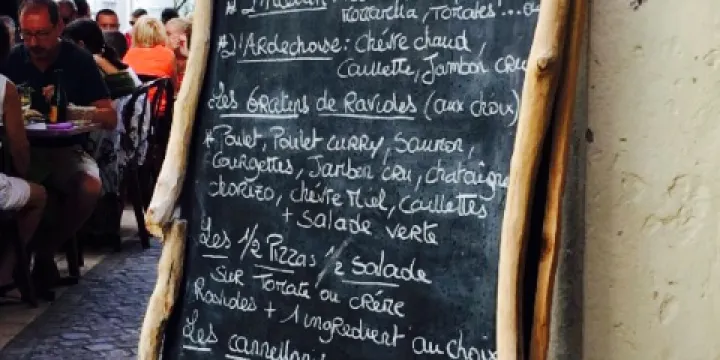 * L'Italien
Mozzarella, Tomates'...
* L'Ardéchoise : Chèvre chaud,
Caillette, Jambon cru
Les Gratins de Ravioles (aux choix)
* Poulet, Poulet curry, Saumon,
Courgettes, Jambon cru, chataigne
chorizo, chèvre Miel, Caillettes
+ Salade verte
Les 1/2 Pizzas 1/2 Salade
Sur Tomate ou crème
Ravioles + 1 ingrédient au choix
Les cannelloni